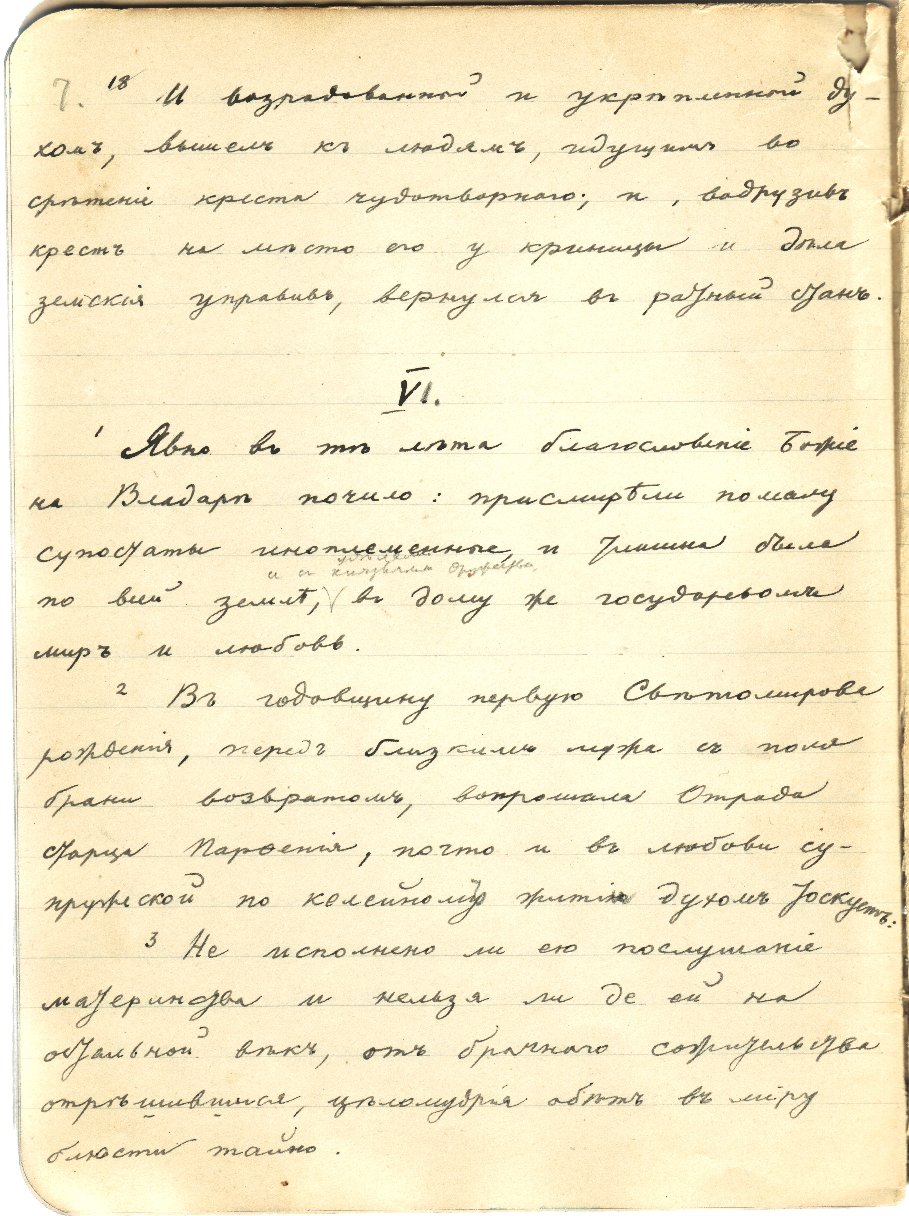 7. 18 И возрадованной и укрѣпленной ду-
хомъ, вышелъ къ людямъ, идущимъ во
срѣтеніе креста чудотворнаго; и, водрузивъ
крестъ на мѣсто его у криницы и дѣла
земскія управивъ, вернулся въ ратный станъ.
VI.
1 Явно въ тѣ лѣта благословеніе Божіе
на Владарѣ почило: присмирѣли помалу
супостаты иноплеменные, и тишина была
и съ князьями дружество,
по всей землѣ, въ дому же государевомъ
миръ и любовь.
2 Въ годовщину первую Свѣтомирова
рожденія, передъ близкимъ мужа съ поля
брани возвратомъ, вопрошала Отрада
старца Парѳенія, почто и въ любови су-
пружеской по келейному житію духомъ тоскуетъ:
3 Не исполнено ли ею послушаніе
материнства и нельзя ли де ей на
остальной вѣкъ, отъ брачнаго сожительства
отрѣшившися, цѣломудрія обѣтъ въ міру
блюсти тайно.